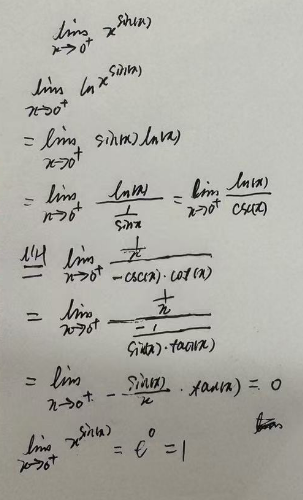 lim x→0⁺ x^sin(x)
lim x→0⁺ ln x^sin(x)
= lim x→0⁺ sin(x) ln(x)
= lim x→0⁺ ln(x) / (1/sinx) = lim x→0⁺ ln(x) / csc(x)
L'H = lim x→0⁺ (1/x) / (-csc(x)·cot(x))
= lim x→0⁺ (1/x) / (-1 / (sin(x)·tan(x)))
= lim x→0⁺ - sin(x)/x · tan(x) = 0
lim x→0⁺ x^sin(x) = e^0 = 1